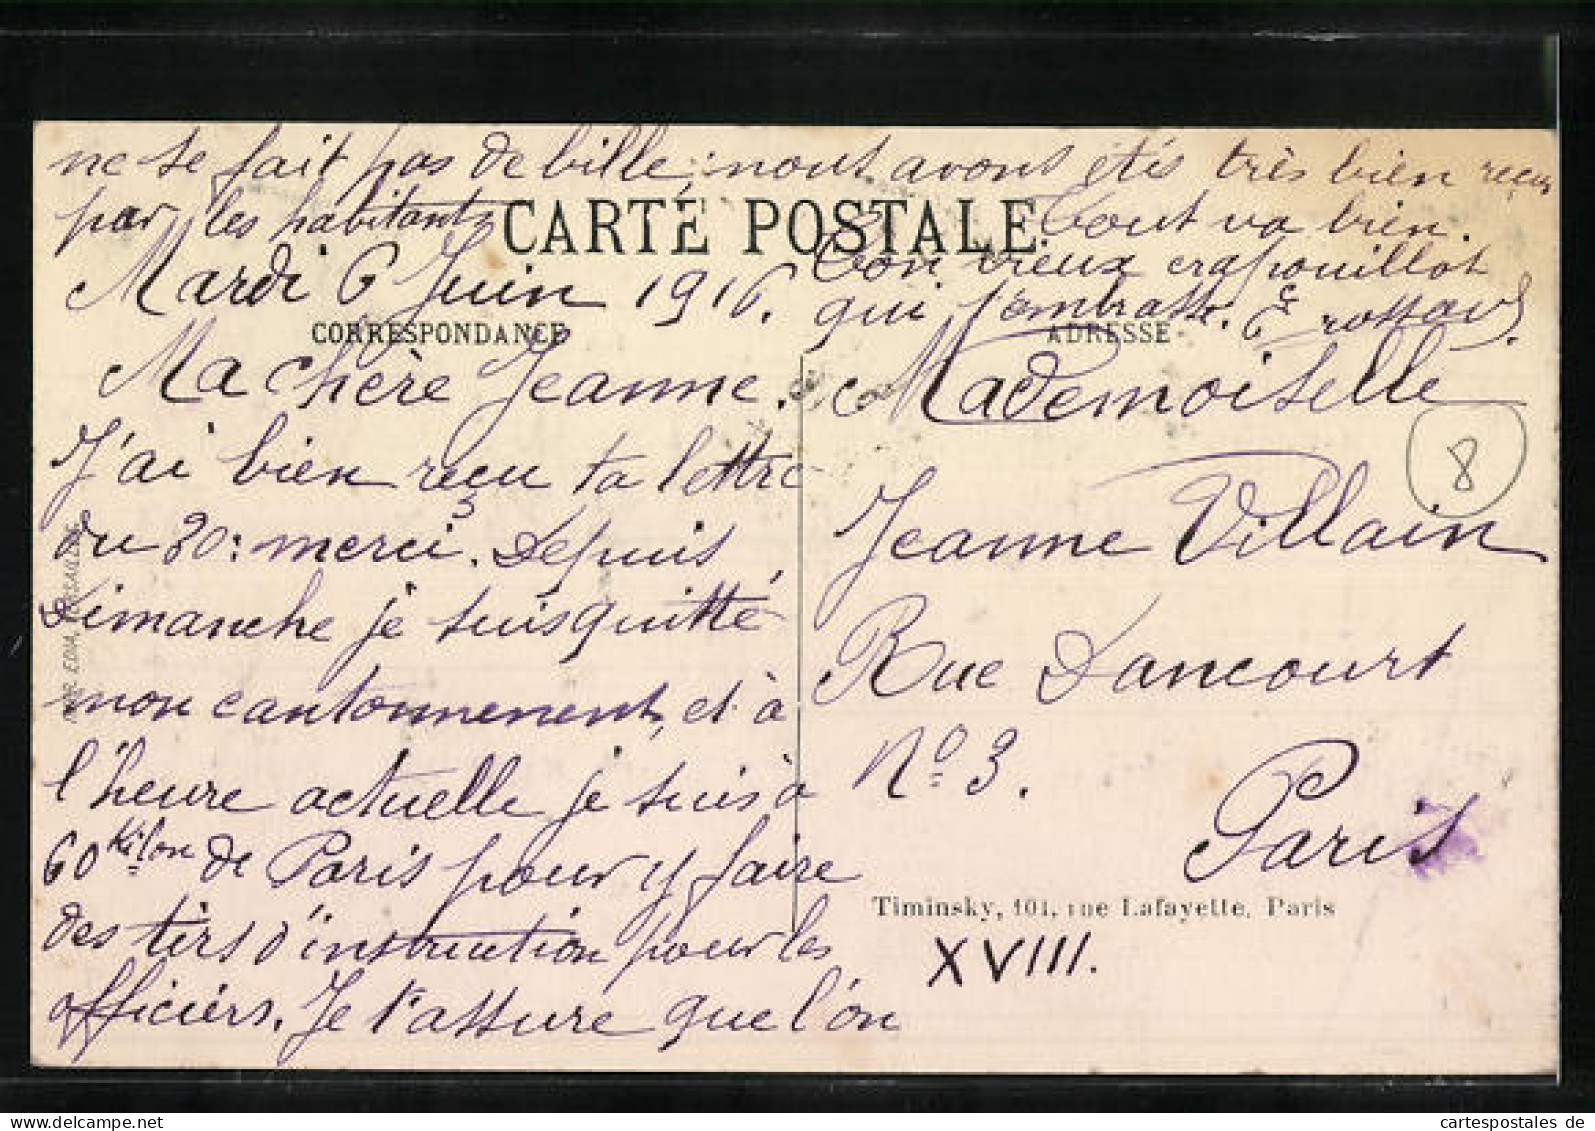 ne se fait pas de bille ; nous avons étés très bien reçus
par les habitants
Tout va bien.
CARTE POSTALE
Ton vieux crapouillot
qui t'embrasse.
Mardi 6 Juin 1916.
CORRESPONDANCE
ADRESSE
Ma chère Jeanne.
J'ai bien reçu ta lettre
du 30 : merci. Depuis
Dimanche je suis quitté
mon cantonnement, et à
l'heure actuelle je suis à
60 Kilom de Paris pour y faire
des tirs d'instruction pour les
officiers. Je t'assure que l'on
Mademoiselle
Jeanne Villain
Rue Dancourt
No 3.
Paris
8
Timinsky, 101, rue Lafayette, Paris
XVIII.
cartespostales de